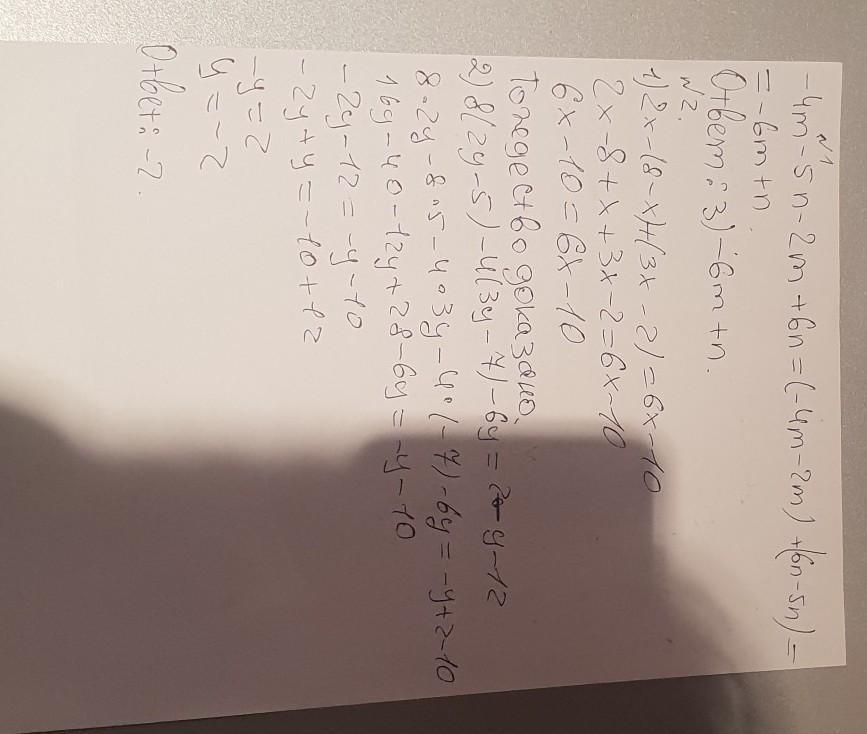 №1
-4m-5n-2m+6n=(-4m-2m)+(6n-5n)=
=-6m+n
Ответ: 3) -6m+n.
№2.
1) 2x-(8-x)+(3x-2)=6x-10
2x-8+x+3x-2=6x-10
6x-10=6x-10
Тождество доказано.
2) 8(2y-5)-4(3y-7)-6y=2-y-12
8∘2y-8∘5-4∘3y-4∘(-7)-6y=-y+2-10
16y-40-12y+28-6y=-y-10
-2y-12=-y-10
-2y+y=-10+12
-y=2
y=-2
Ответ: -2.